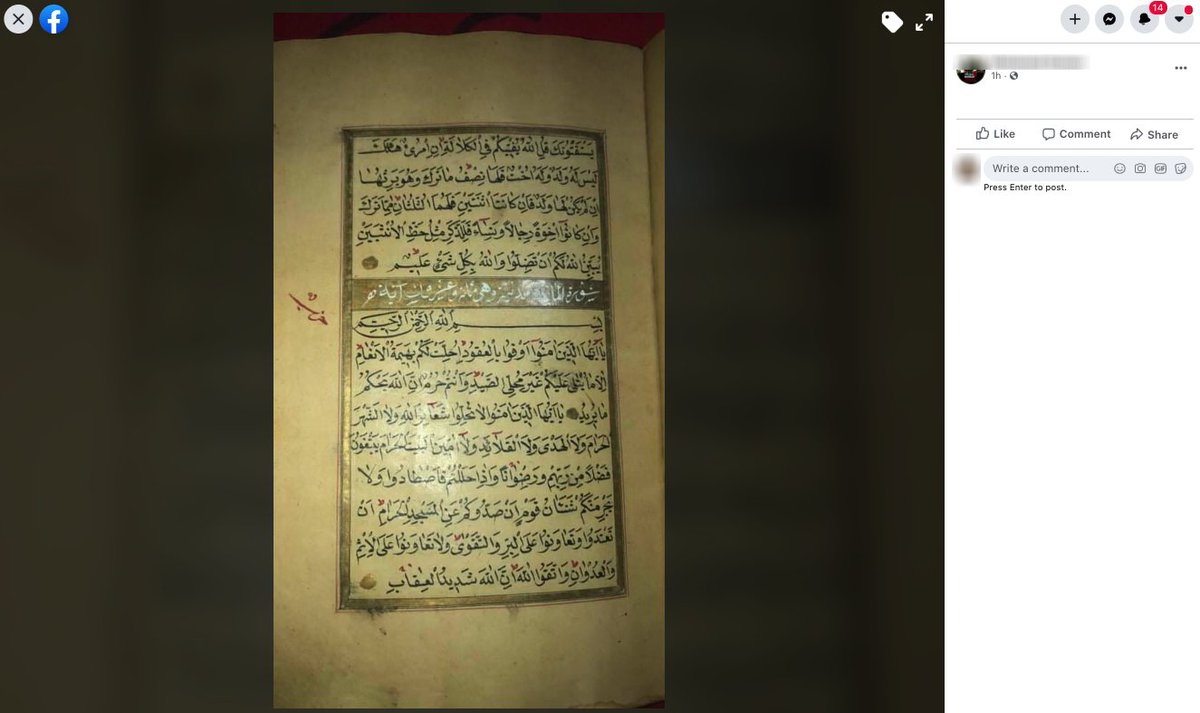 14
1h
Like Comment Share
Write a comment...
GIF
Press Enter to post.
يَسْتَفْتُونَكَ قُلِ اللّٰهُ يُفْتِيكُمْ فِي الْكَلَالَةِ اِنِ امْرُؤٌ هَلَكَ
لَيْسَ لَهُ وَلَدٌ وَلَهُ اُخْتٌ فَلَهَا نِصْفُ مَا تَرَكَ وَهُوَ يَرِثُهَا
اِنْ لَمْ يَكُنْ لَهَا وَلَدٌ فَاِنْ كَانَتَا اثْنَتَيْنِ فَلَهُمَا الثُّلُثَانِ مِمَّا تَرَكَ
وَاِنْ كَانُوا اِخْوَةً رِجَالًا وَنِسَاءً فَلِلذَّكَرِ مِثْلُ حَظِّ الْاُنْثَيَيْنِ
يُبَيِّنُ اللّٰهُ لَكُمْ اَنْ تَضِلُّوا وَاللّٰهُ بِكُلِّ شَيْءٍ عَلِيمٌ
سورة المائدة مدنية وهي مائة وعشرون آية
حزب
بِسْمِ اللّٰهِ الرَّحْمٰنِ الرَّحِيمِ
يَا اَيُّهَا الَّذِينَ اٰمَنُوا اَوْفُوا بِالْعُقُودِ اُحِلَّتْ لَكُمْ بَهِيمَةُ الْاَنْعَامِ
اِلَّا مَا يُتْلٰى عَلَيْكُمْ غَيْرَ مُحِلِّي الصَّيْدِ وَاَنْتُمْ حُرُمٌ اِنَّ اللّٰهَ يَحْكُمُ
مَا يُرِيدُ يَا اَيُّهَا الَّذِينَ اٰمَنُوا لَا تُحِلُّوا شَعَائِرَ اللّٰهِ وَلَا الشَّهْرَ
الْحَرَامَ وَلَا الْهَدْيَ وَلَا الْقَلَائِدَ وَلَا اٰمِّينَ الْبَيْتَ الْحَرَامَ يَبْتَغُونَ
فَضْلًا مِنْ رَبِّهِمْ وَرِضْوَانًا وَاِذَا حَلَلْتُمْ فَاصْطَادُوا وَلَا
يَجْرِمَنَّكُمْ شَنَاٰنُ قَوْمٍ اَنْ صَدُّوكُمْ عَنِ الْمَسْجِدِ الْحَرَامِ اَنْ
تَعْتَدُوا وَتَعَاوَنُوا عَلَى الْبِرِّ وَالتَّقْوٰى وَلَا تَعَاوَنُوا عَلَى الْاِثْمِ
وَالْعُدْوَانِ وَاتَّقُوا اللّٰهَ اِنَّ اللّٰهَ شَدِيدُ الْعِقَابِ